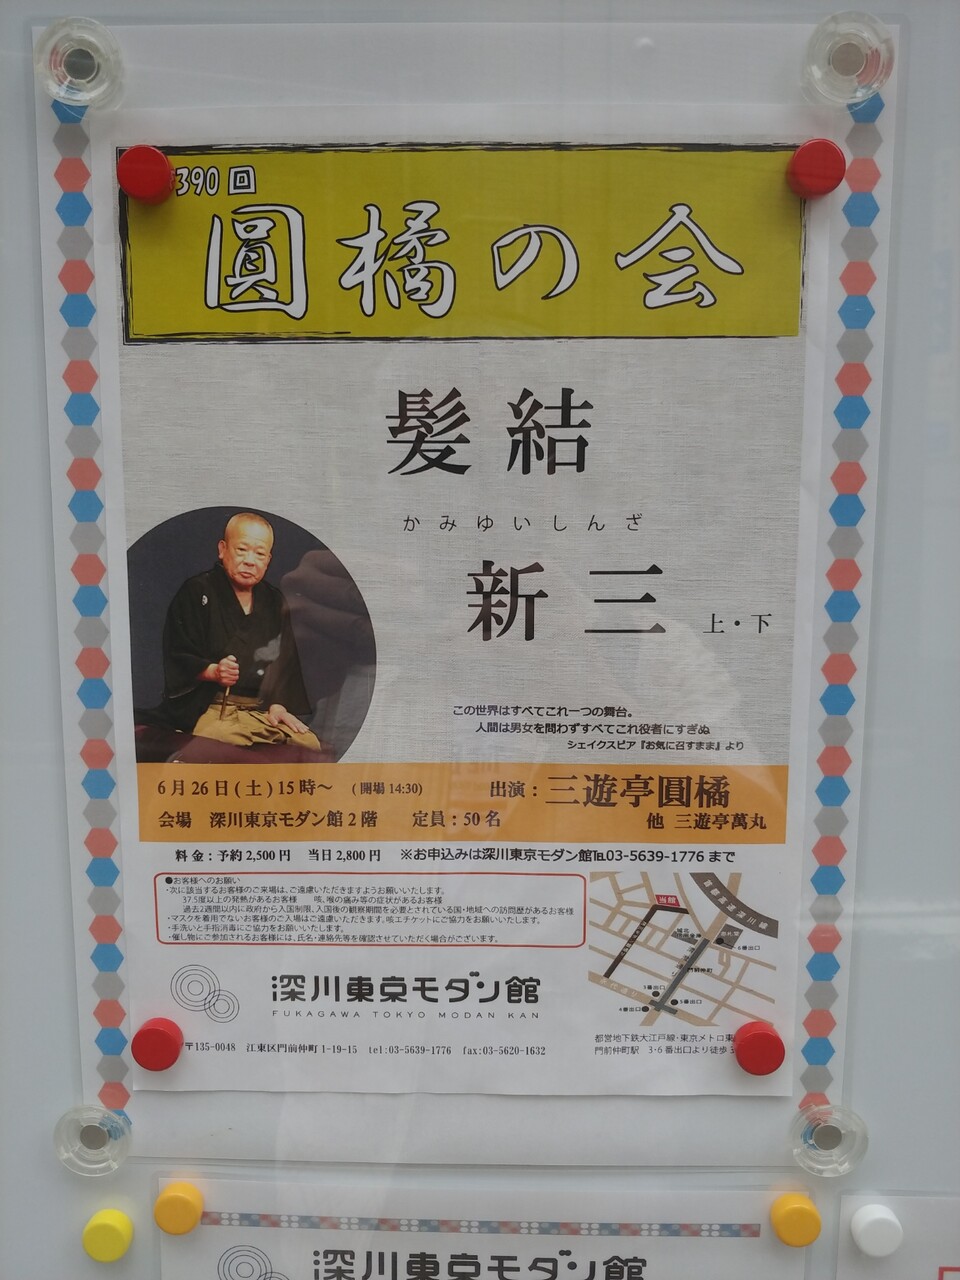 390回
圓橘の会
髪結
かみゆいしんざ
新三 上・下
この世界はすべてこれ一つの舞台。
人間は男女を問わずすべてこれ役者にすぎぬ
シェイクスピア『お気に召すまま』より
6月26日(土)15時〜 (開場14:30) 出演：三遊亭圓橘
会場 深川東京モダン館2階 定員：50名 他 三遊亭萬丸
料金：予約2,500円 当日2,800円 ※お申込みは深川東京モダン館℡03-5639-1776まで
●お客様へのお願い
・次に該当するお客様のご来場は、ご遠慮いただきますようお願いいたします。
37.5度以上の発熱があるお客様 咳、喉の痛み等の症状があるお客様
過去2週間以内に政府から入国制限、入国後の観察期間を必要とされている国・地域への訪問歴があるお客様
・マスクを着用でないお客様のご入場はご遠慮いただきます。咳エチケットにご協力をお願いいたします。
・手洗いと手指消毒にご協力をお願いいたします。
・催し物にご参加されるお客様には、氏名・連絡先等を確認させていただく場合がございます。
当館
首都高速深川線
6番出口
門前仲町
1番出口
4番出口
5番出口
深川東京モダン館
FUKAGAWA TOKYO MODAN KAN
〒135-0048 江東区門前仲町1-19-15 tel:03-5639-1776 fax:03-5620-1632
都営地下鉄大江戸線・東京メトロ東
門前仲町駅 3・6番出口より徒歩3
深川東京モダン館